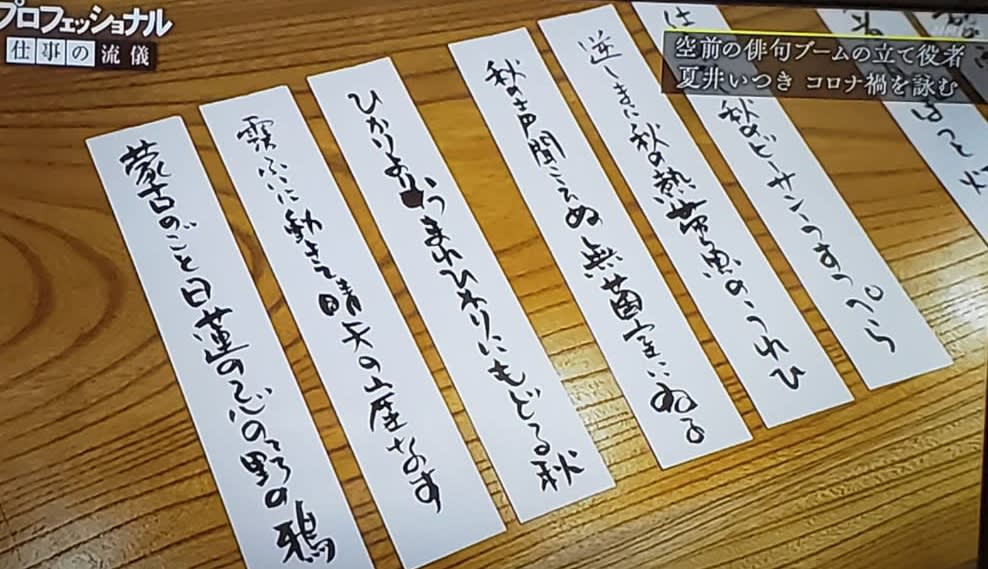 プロフェッショナル
仕事の流儀
空前の俳句ブームの立て役者
夏井いつき コロナ禍を詠む
はっと火
秋のビーサンのうすっぺら
逆しまに秋の熱帯魚のうれひ
秋の声聞こえぬ無菌室にねる
ひかりよりうまれひかりにもどる秋
霧ふいに動きて晴天の座なす
蒙古のごと日蓮の忌の野の鴉